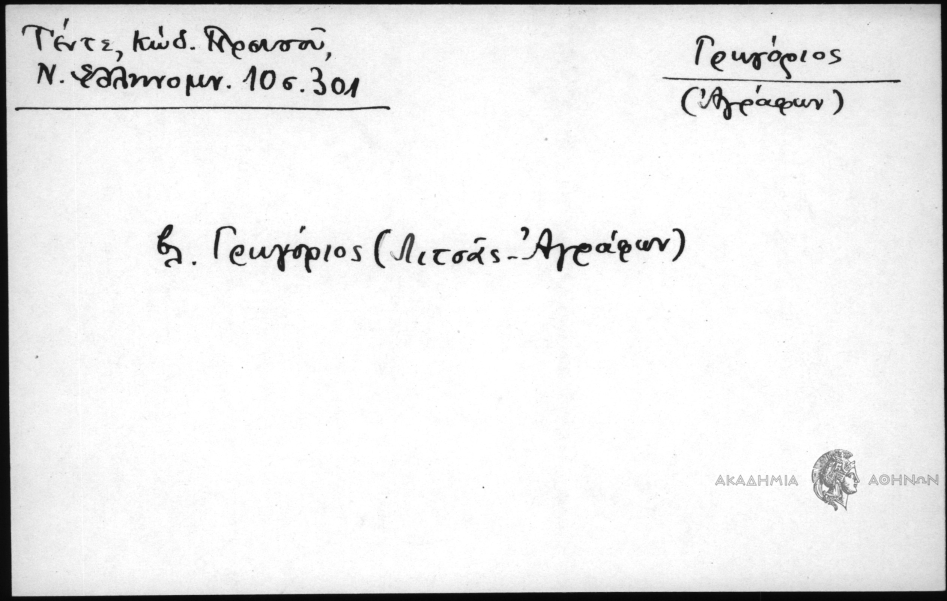 Τέντε, Κώδ. Προυσοῦ,
Ν. Ἑλληνομν. 10 σ. 301
Γρηγόριος
(Ἀγράφων)
βλ. Γρηγόριος (Λιτσᾶς-Ἀγράφων)
ΑΚΑΔΗΜΙΑ ΑΘΗΝΩΝ